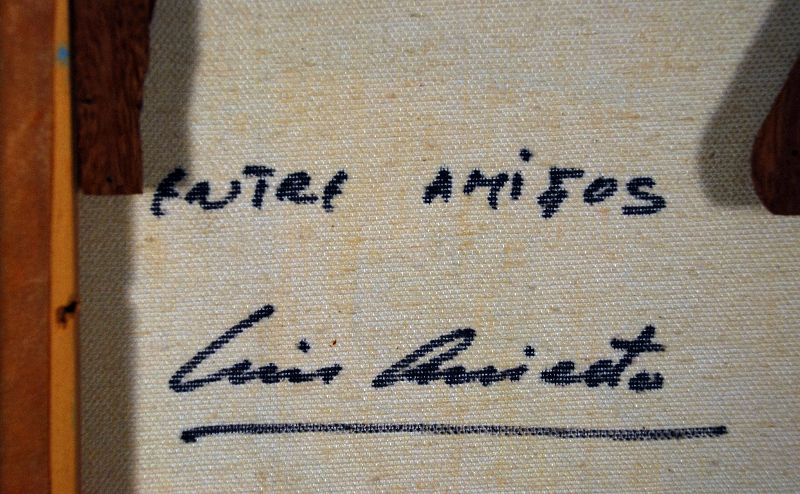 ENTRE AMIGOS
Luis Amieto